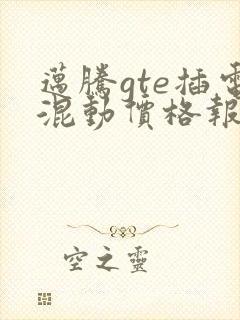 邁騰gte插電
混動價格報
空之靈